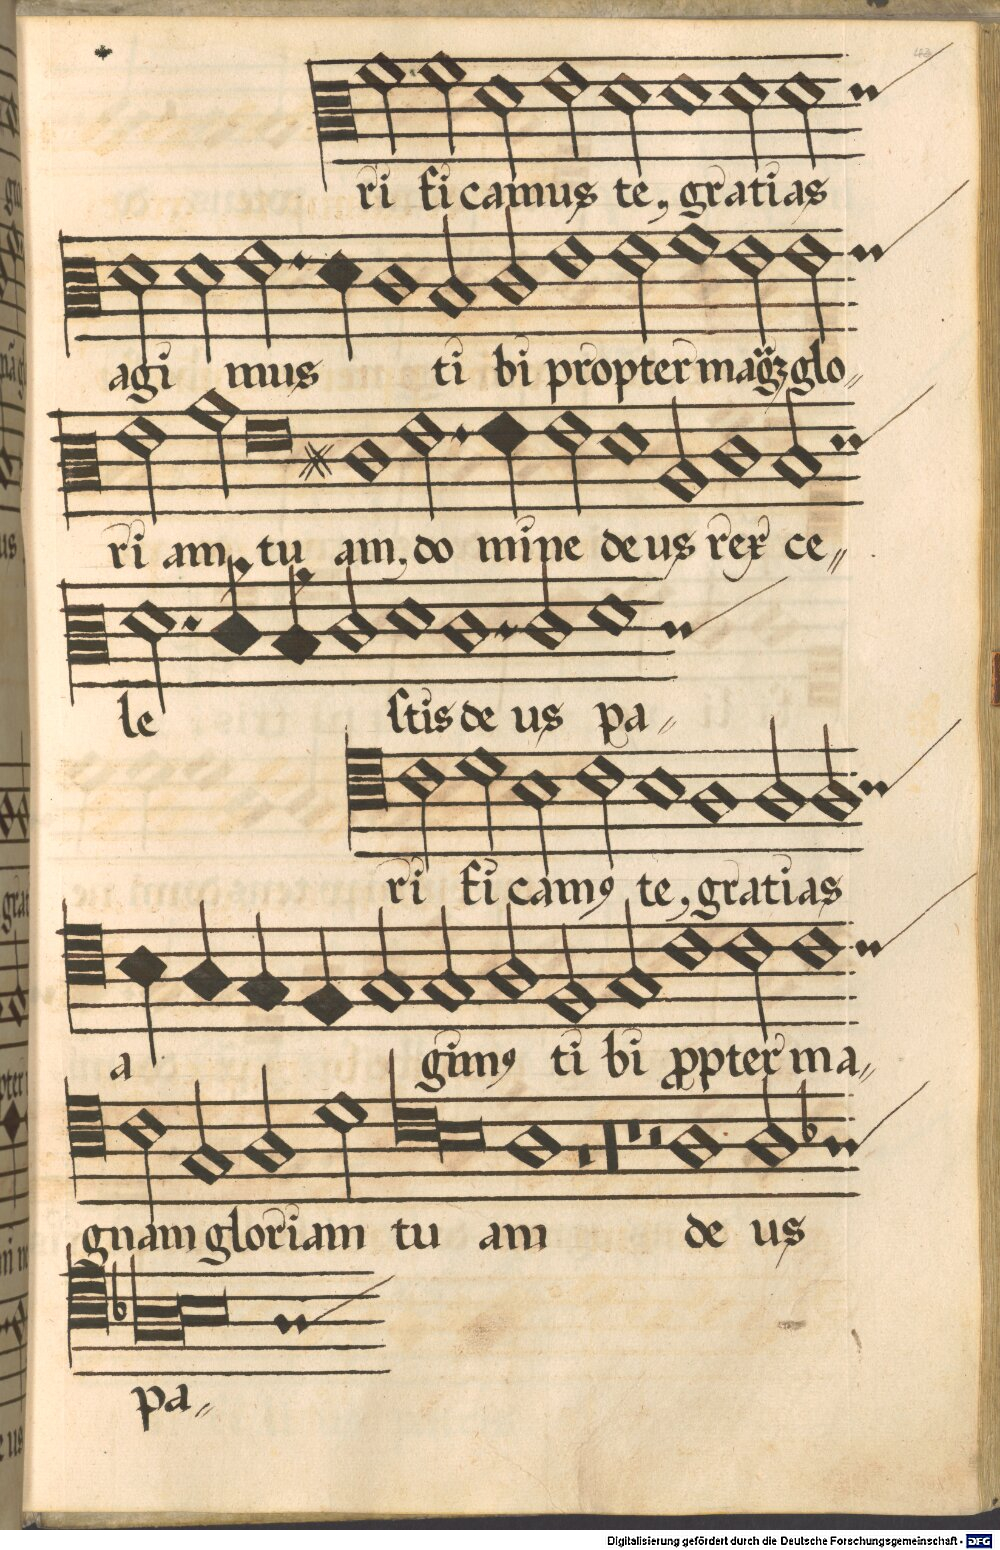 ri fi camus te, gratias
agi mus ti bi propter magꝫ glo„
ri am, tu am, do mine deus rex ce„
le stis de us pa„
ri fi camꝰ te, gratias
a gimꝰ ti bi ꝓpter ma„
gnam gloriam tu am de us
pa„
Digitalisierung gefördert durch die Deutsche Forschungsgemeinschaft - DFG